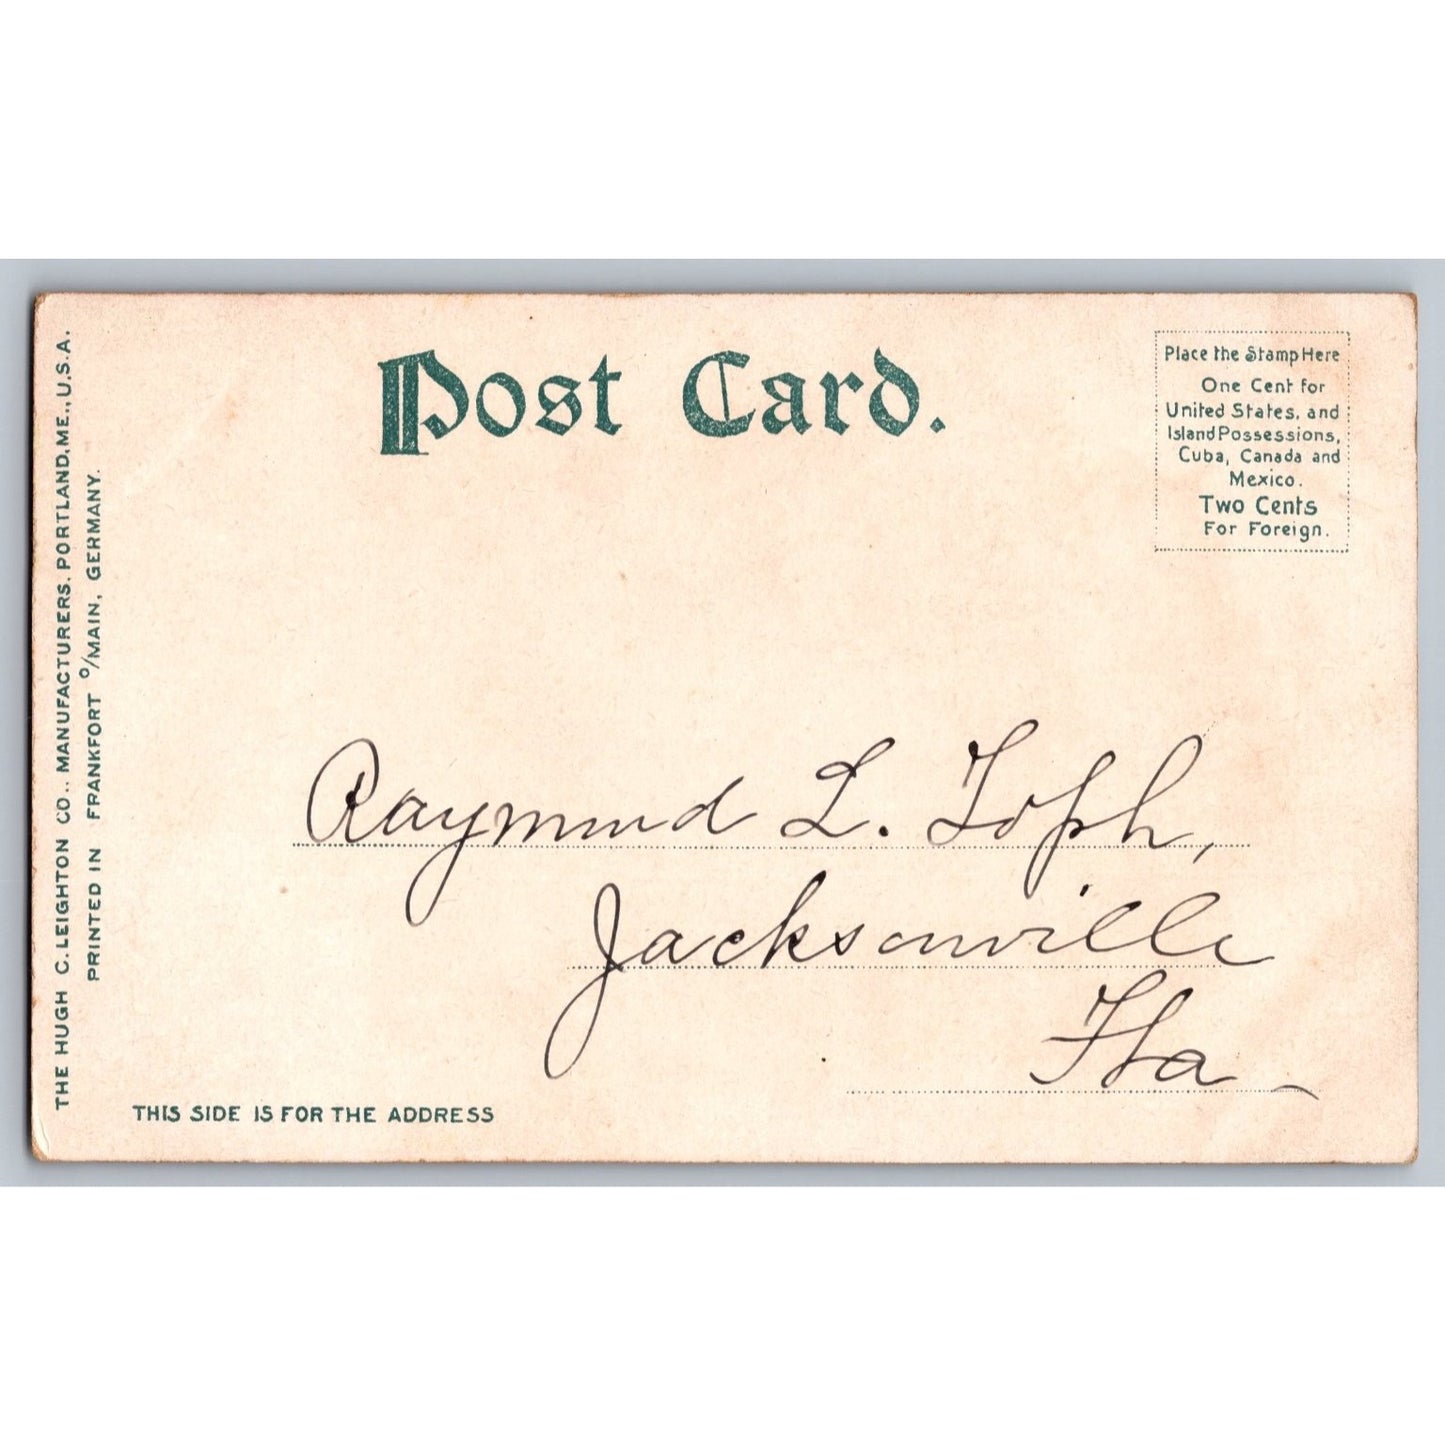 Post Card.
Place the Stamp Here
One Cent for
United States, and
Island Possessions,
Cuba, Canada and
Mexico.
Two Cents
For Foreign.
THE HUGH C. LEIGHTON CO., MANUFACTURERS, PORTLAND, ME., U.S.A.
PRINTED IN FRANKFORT O/MAIN, GERMANY.
Raymond L. Toph,
Jacksonville
Fla
THIS SIDE IS FOR THE ADDRESS